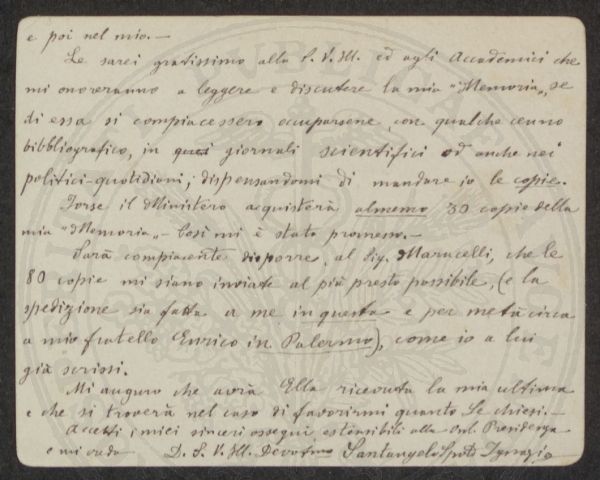 e poi nel mio. —
Le sarei gratissimo alla S. V. Ill. ed agli Accademici che
mi onoreranno a leggere e discutere la mia "Memoria", se
di essa si compiacessero occuparsene, con qualche cenno
bibbliografico, in quei giornali scientifici od anche nei
politici-quotidiani; dispensandomi di mandare io le copie.
Forse il Ministero acquisterà almeno 30 copie della
mia "Memoria" — Così mi è stato promesso. —
Sarà compiacente disporre, al Sig. Marucelli, che le
80 copie mi siano inviate al più presto possibile, (e la
spedizione sia fatta a me in questa e per metà circa
a mio fratello Enrico in Palermo), come io a lui
già scrissi.
Mi auguro che avrà Ella ricevuta la mia ultima
e che si troverà nel caso di favorirmi quanto Le chiesi. —
Accetti i miei sinceri ossequi estensibili alla On. Presidenza
e mi creda D. S. V. Ill. Devotmo Santangelo Spoto Ignazio